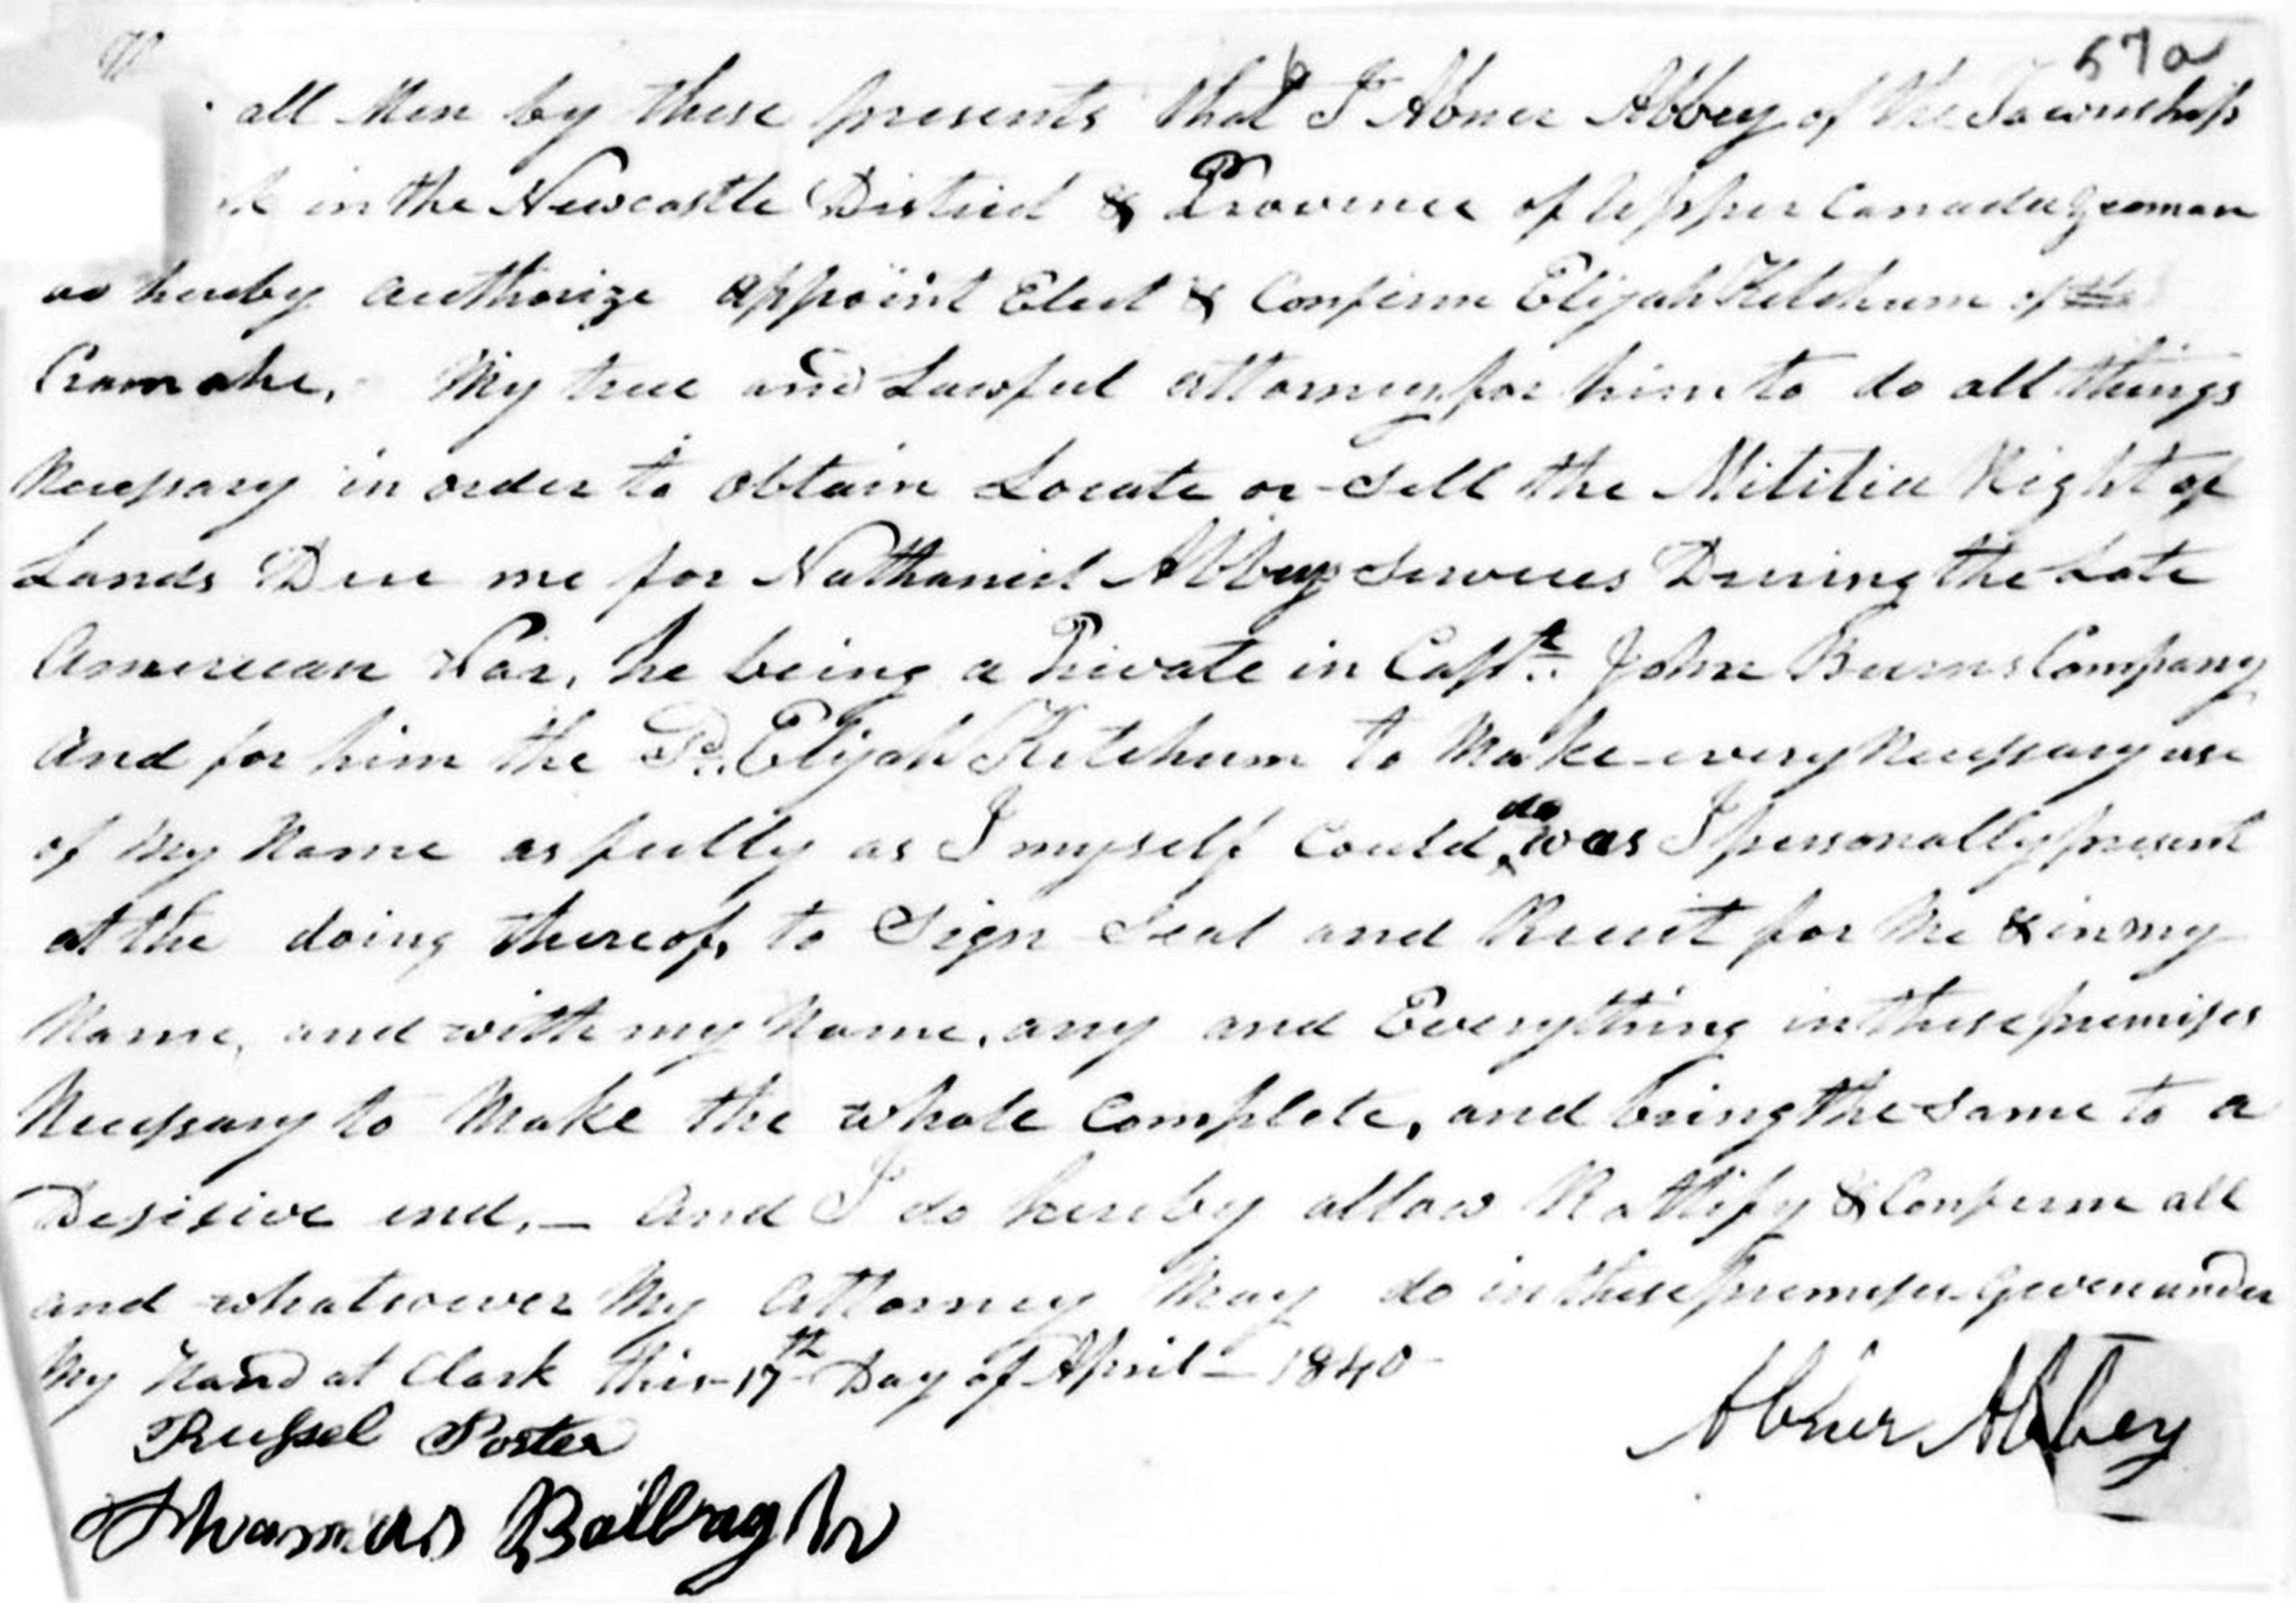 57a
6
all Men by these presents that I Abner Abbey of the Township
k in the Newcastle District & Province of Upper Canada Yeoman
do hereby authorize appoint Elect & Confirm Elijah Ketchum of the
Cramahe, My true and Lawful attorney for him to do all things
Necessary in order to obtain Locate or Sell the Militia Right of
Lands Due me for Nathaniel Abbey Services During the Late
American War, he being a Private in Capt. John Burns Company
And for him the Sd. Elijah Ketchum to Make every Necessary use
of My Name as fully as I myself Could do was I personally present
at the doing thereof, to Sign Seal and Receit for Me & in my
Name, and with my Name, any and Everything in these premises
Necessary to Make the whole Complete, and bring the Same to a
Desisive end, — And I do hereby allow Rattify & Confirm all
and whatsoever My Attorney May do in these premises Given under
My Hand at Clark this 17th Day of April — 1840
Russel Porter
Abner Abbey
Thomas